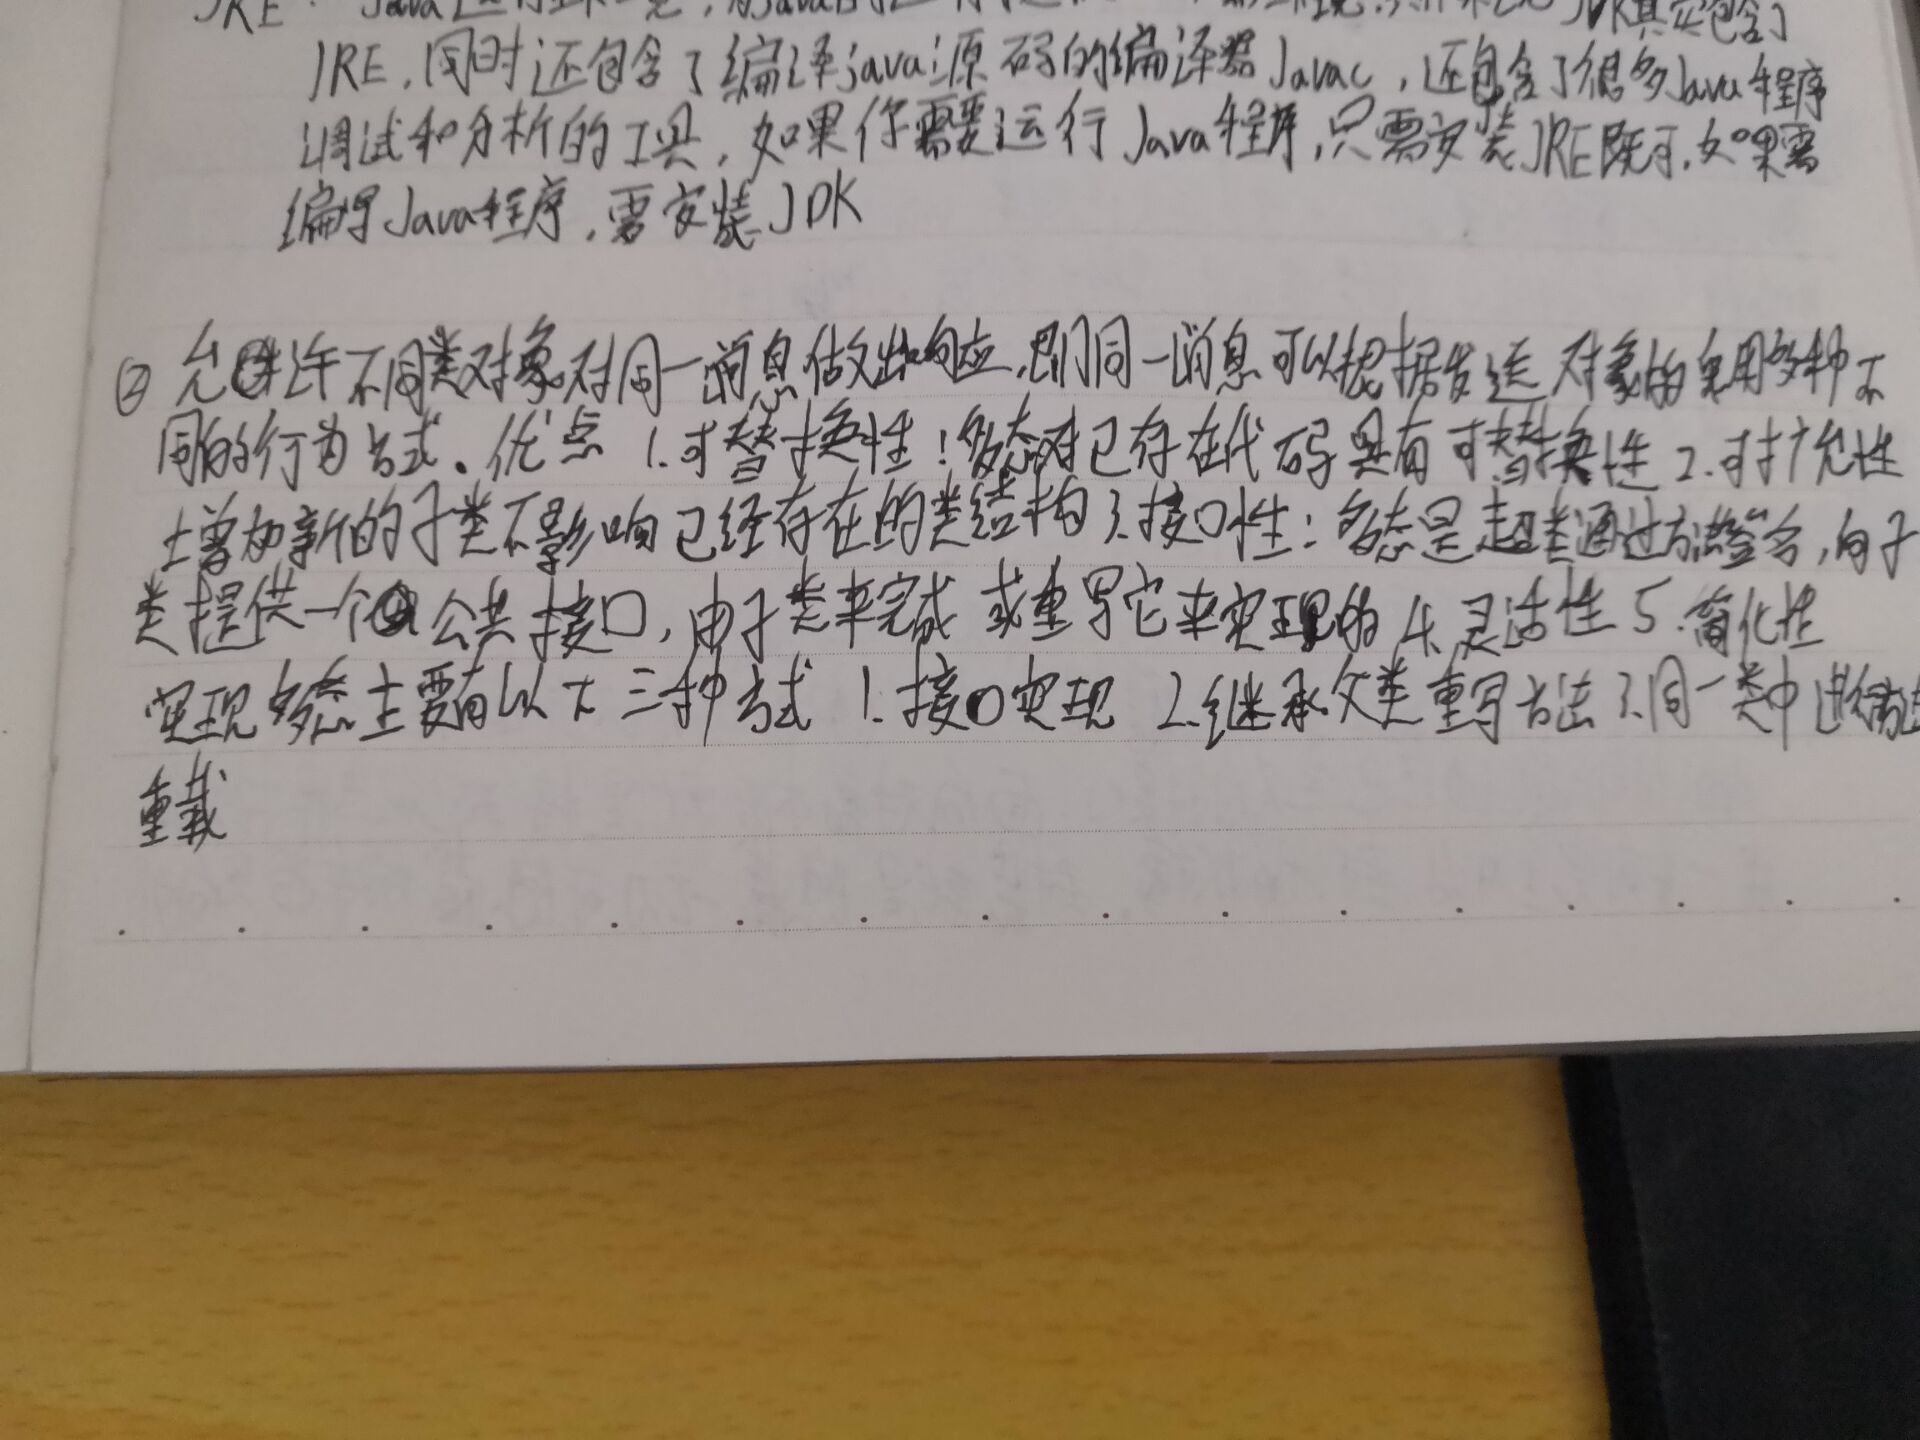 JRE: Java运行环境 JDK其实包含了
JRE,同时还包含了编译java源码的编译器Javac,还包含了很多Java程序
调试和分析的工具,如果你需要运行Java程序,只需安装JRE既可,如果需
编写Java程序,需安装JDK
② 允许不同类对象对同一消息做出响应,即同一消息可以根据发送对象的采用多种不
同的行为方式。优点 1.可替换性:多态对已存在代码具有可替换性 2.可扩允性
增加新的子类不影响已经存在的类结构 3.接口性:多态是超类通过方法签名,向子
类提供一个公共接口,由子类来完成或重写它来实现的 4.灵活性 5.简化性
实现多态主要有以下三种方式 1.接口实现 2.继承父类重写方法 3.同一类中进行方法
重载